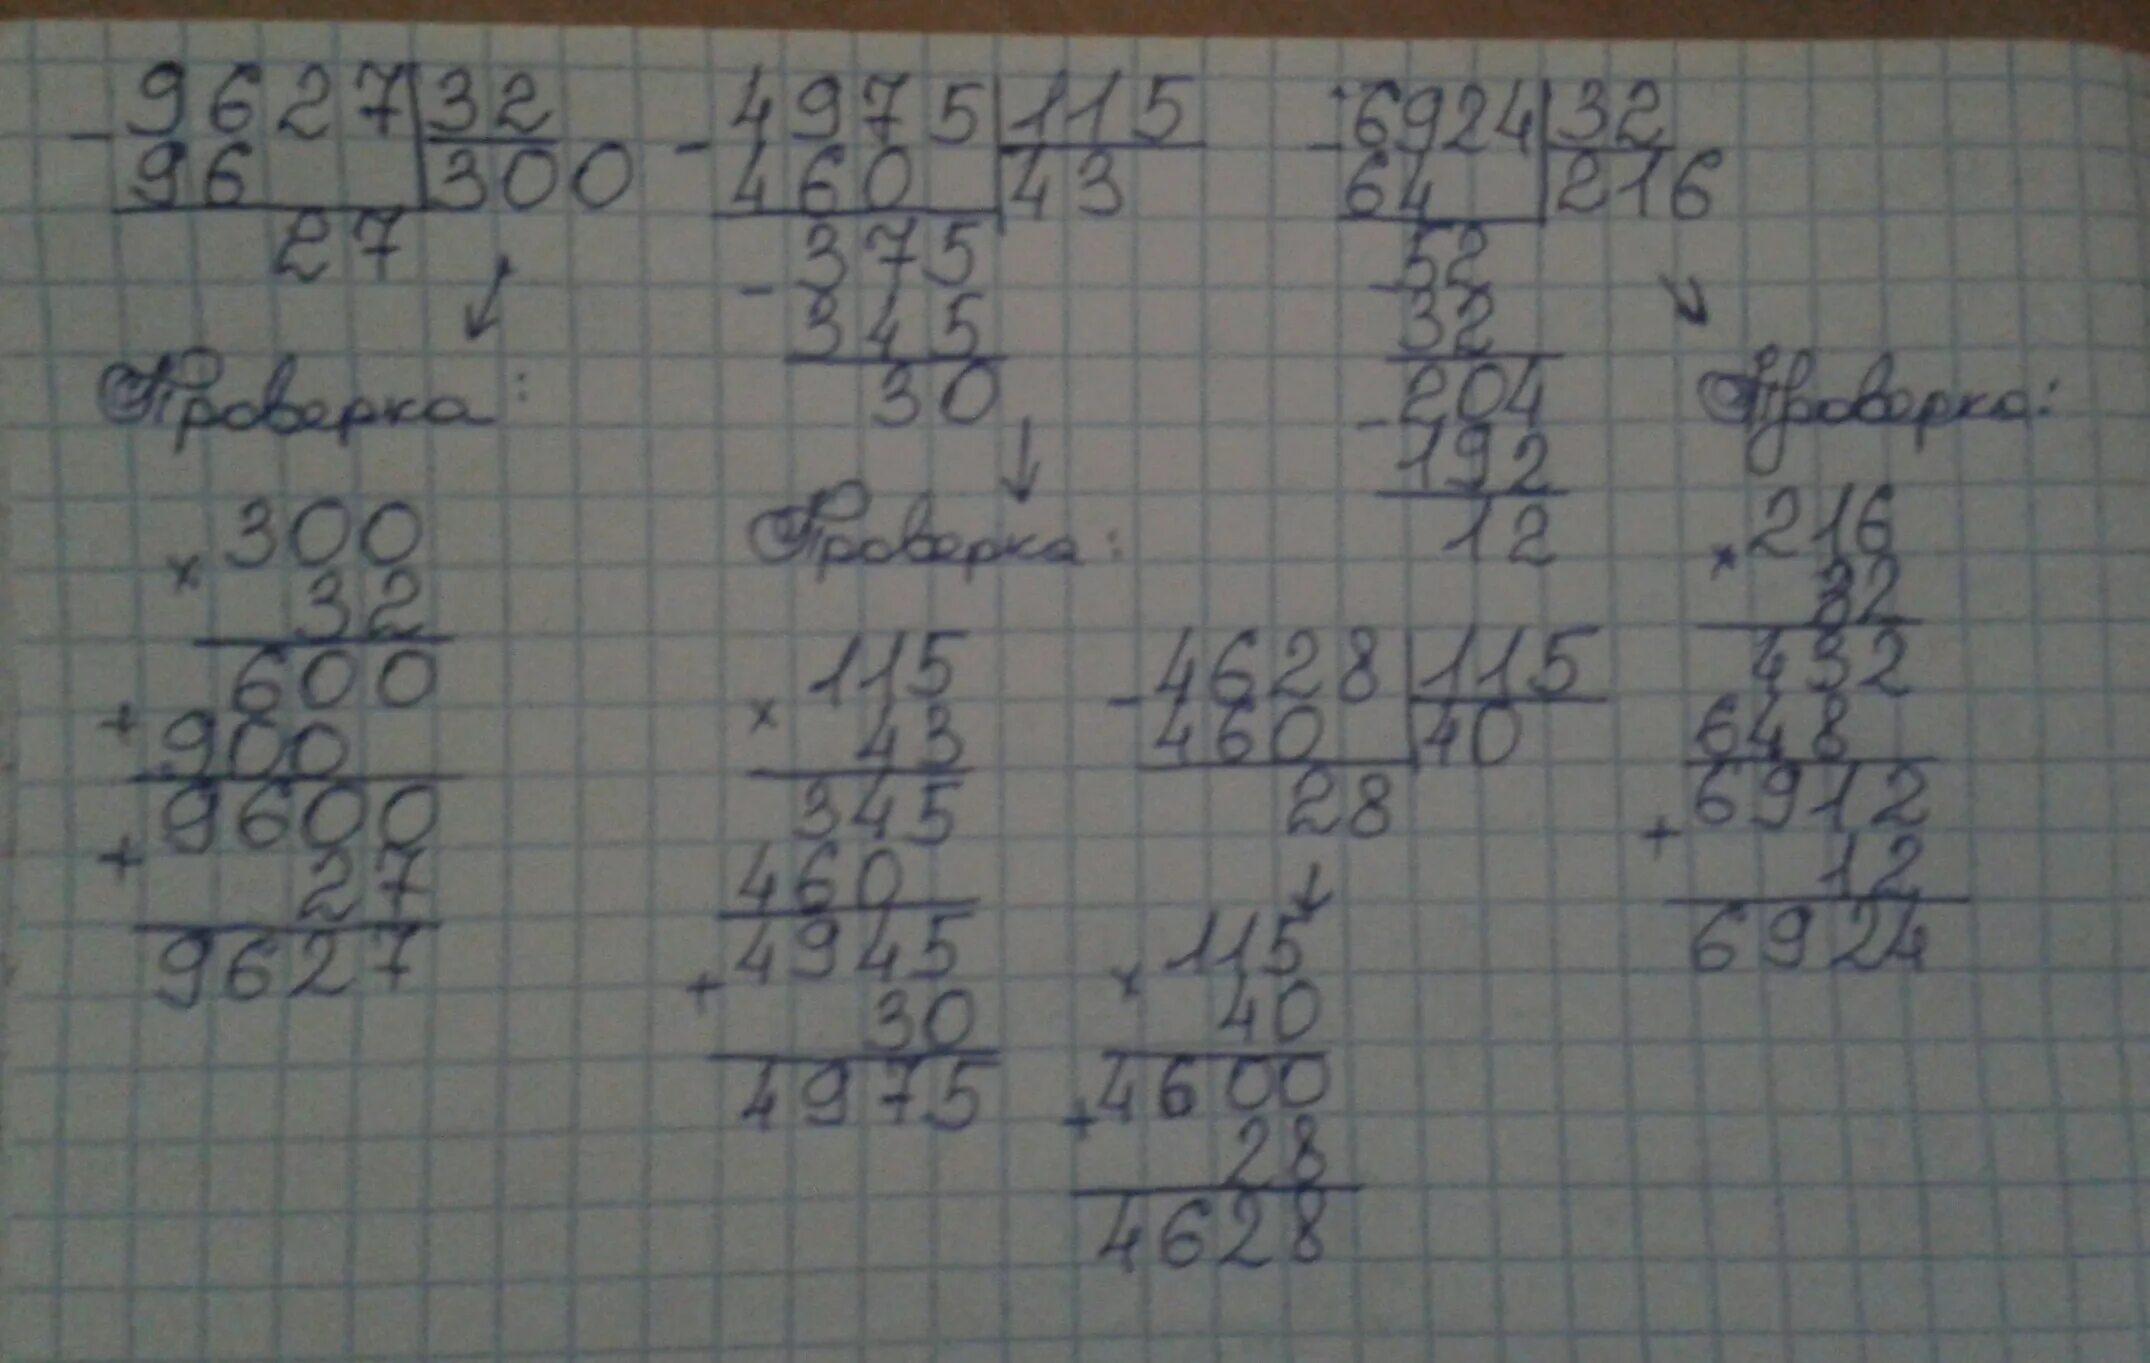 - 9627 | 32
96 | 300
27
Проверка:
× 300
32
600
+ 900
9600
+ 27
9627
- 4975 | 115
460 | 43
375
- 345
30
Проверка:
× 115
43
345
460
4945
+ 30
4975
- 6924 | 32
64 | 216
52
- 32
204
- 192
12
Проверка:
× 216
32
432
648
6912
+ 12
6924
- 4628 | 115
460 | 40
28
× 115
40
4600
+ 28
4628